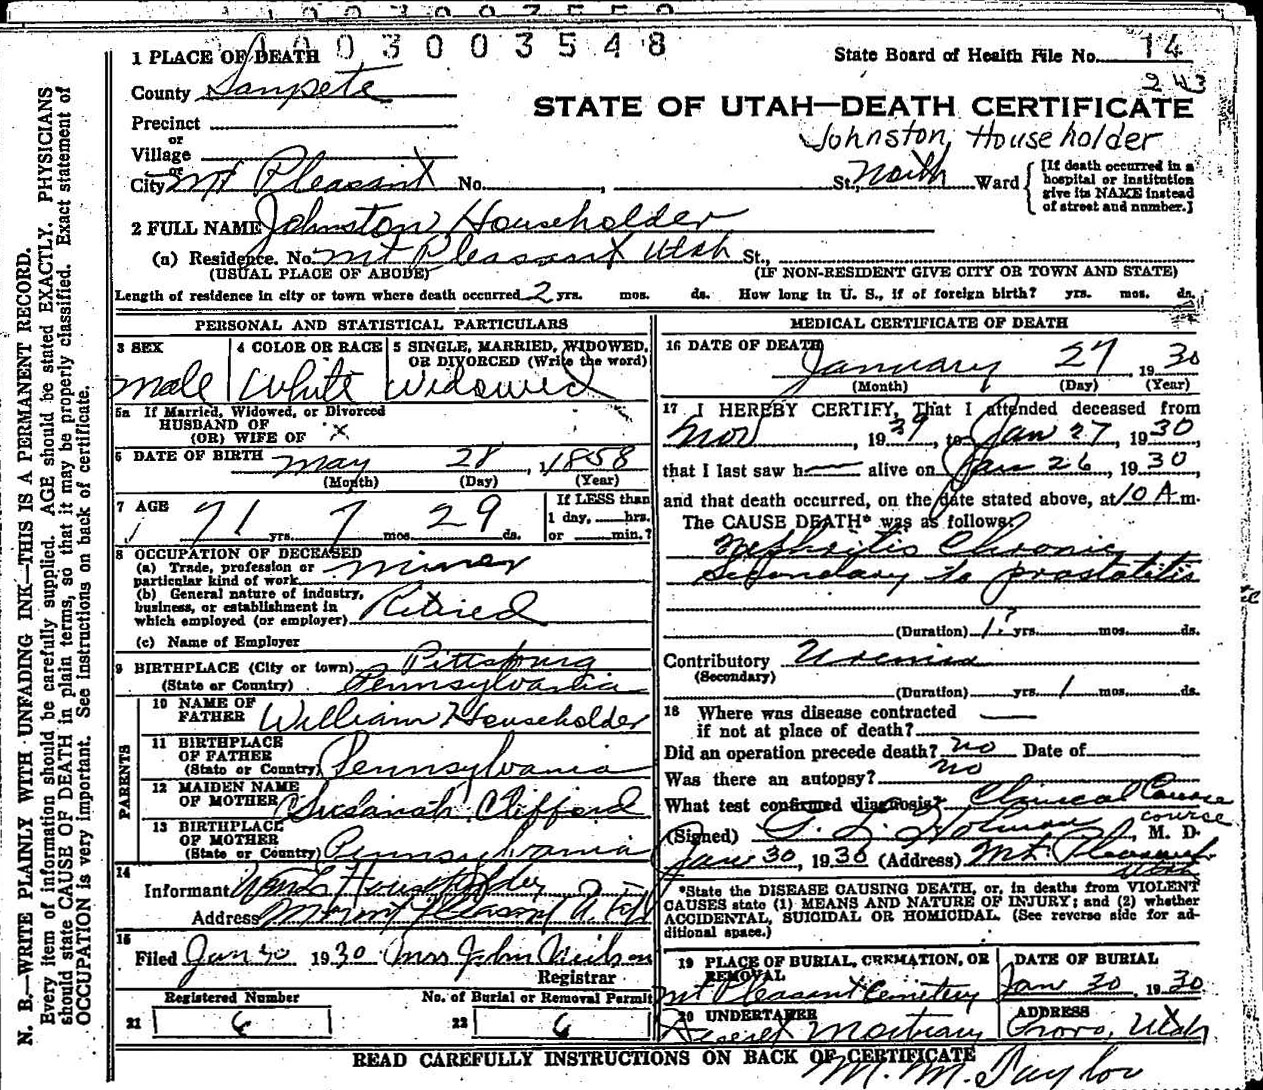 1003003548
1 PLACE OF DEATH
State Board of Health File No. 14
243
County Sanpete
STATE OF UTAH—DEATH CERTIFICATE
Precinct
or
Johnston, Householder
Village
or
City Mt Pleasant No. , St., North Ward
[If death occurred in a
hospital or institution
give its NAME instead
of street and number.]
2 FULL NAME Johnston Householder
(a) Residence. No. Mt Pleasant Utah St.,
(USUAL PLACE OF ABODE) (IF NON-RESIDENT GIVE CITY OR TOWN AND STATE)
Length of residence in city or town where death occurred 2 yrs. mos. ds. How long in U. S., if of foreign birth? yrs. mos. ds.
PERSONAL AND STATISTICAL PARTICULARS
3 SEX
male
4 COLOR OR RACE
White
5 SINGLE, MARRIED, WIDOWED,
OR DIVORCED (Write the word)
Widowed
5a If Married, Widowed, or Divorced
HUSBAND OF
(OR) WIFE OF x
6 DATE OF BIRTH may 28, 1858
(Month) (Day) (Year)
7 AGE 71 yrs. 7 mos. 29 ds.
If LESS than
1 day, hrs.
or min.?
8 OCCUPATION OF DECEASED
(a) Trade, profession or
particular kind of work miner
(b) General nature of industry,
business, or establishment in
which employed (or employer) Retired
(c) Name of Employer
9 BIRTHPLACE (City or town) Pittsburg
(State or Country) Pennsylvania
PARENTS
10 NAME OF
FATHER William Householder
11 BIRTHPLACE
OF FATHER
(State or Country) Pennsylvania
12 MAIDEN NAME
OF MOTHER Susanah Clifford
13 BIRTHPLACE
OF MOTHER
(State or Country) Pennsylvania
14
Informant Householder
Address Mount Pleasant
15
Filed Jan 30 1930 Mrs John Neilson
Registrar
Registered Number
21 6
No. of Burial or Removal Permit
22 6
MEDICAL CERTIFICATE OF DEATH
16 DATE OF DEATH
January 27 1930
(Month) (Day) (Year)
17 I HEREBY CERTIFY, That I attended deceased from
Nov , 1939, to Jan 27, 1930,
that I last saw h— alive on Jan 26, 1930,
and that death occurred, on the date stated above, at 10 A m.
The CAUSE DEATH* was as follows:
Nephritis Chronic
Secondary to prostatitis
(Duration) 1? yrs. mos. ds.
Contributory Uremia
(Secondary)
(Duration) yrs. 1 mos. ds.
18 Where was disease contracted
if not at place of death?
Did an operation precede death? no Date of
Was there an autopsy? no
What test confirmed diagnosis? Clinical Course
course
(Signed) Holman, M. D.
Jan 30, 1930 (Address) Mt. Pleasant
Utah
*State the DISEASE CAUSING DEATH, or, in deaths from VIOLENT
CAUSES state (1) MEANS AND NATURE OF INJURY; and (2) whether
ACCIDENTAL, SUICIDAL OR HOMICIDAL. (See reverse side for ad-
ditional space.)
19 PLACE OF BURIAL, CREMATION, OR
REMOVAL
Mt Pleasant Cemetery
DATE OF BURIAL
Jan 30, 1930
20 UNDERTAKER
Deseret Mortuary
ADDRESS
Provo, Utah
READ CAREFULLY INSTRUCTIONS ON BACK OF CERTIFICATE
M. M. Taylor
N. B.—WRITE PLAINLY WITH UNFADING INK—THIS IS A PERMANENT RECORD.
Every item of information should be carefully supplied. AGE should be stated EXACTLY. PHYSICIANS
should state CAUSE OF DEATH in plain terms, so that it may be properly classified. Exact statement of
OCCUPATION is very important. See instructions on back of certificate.